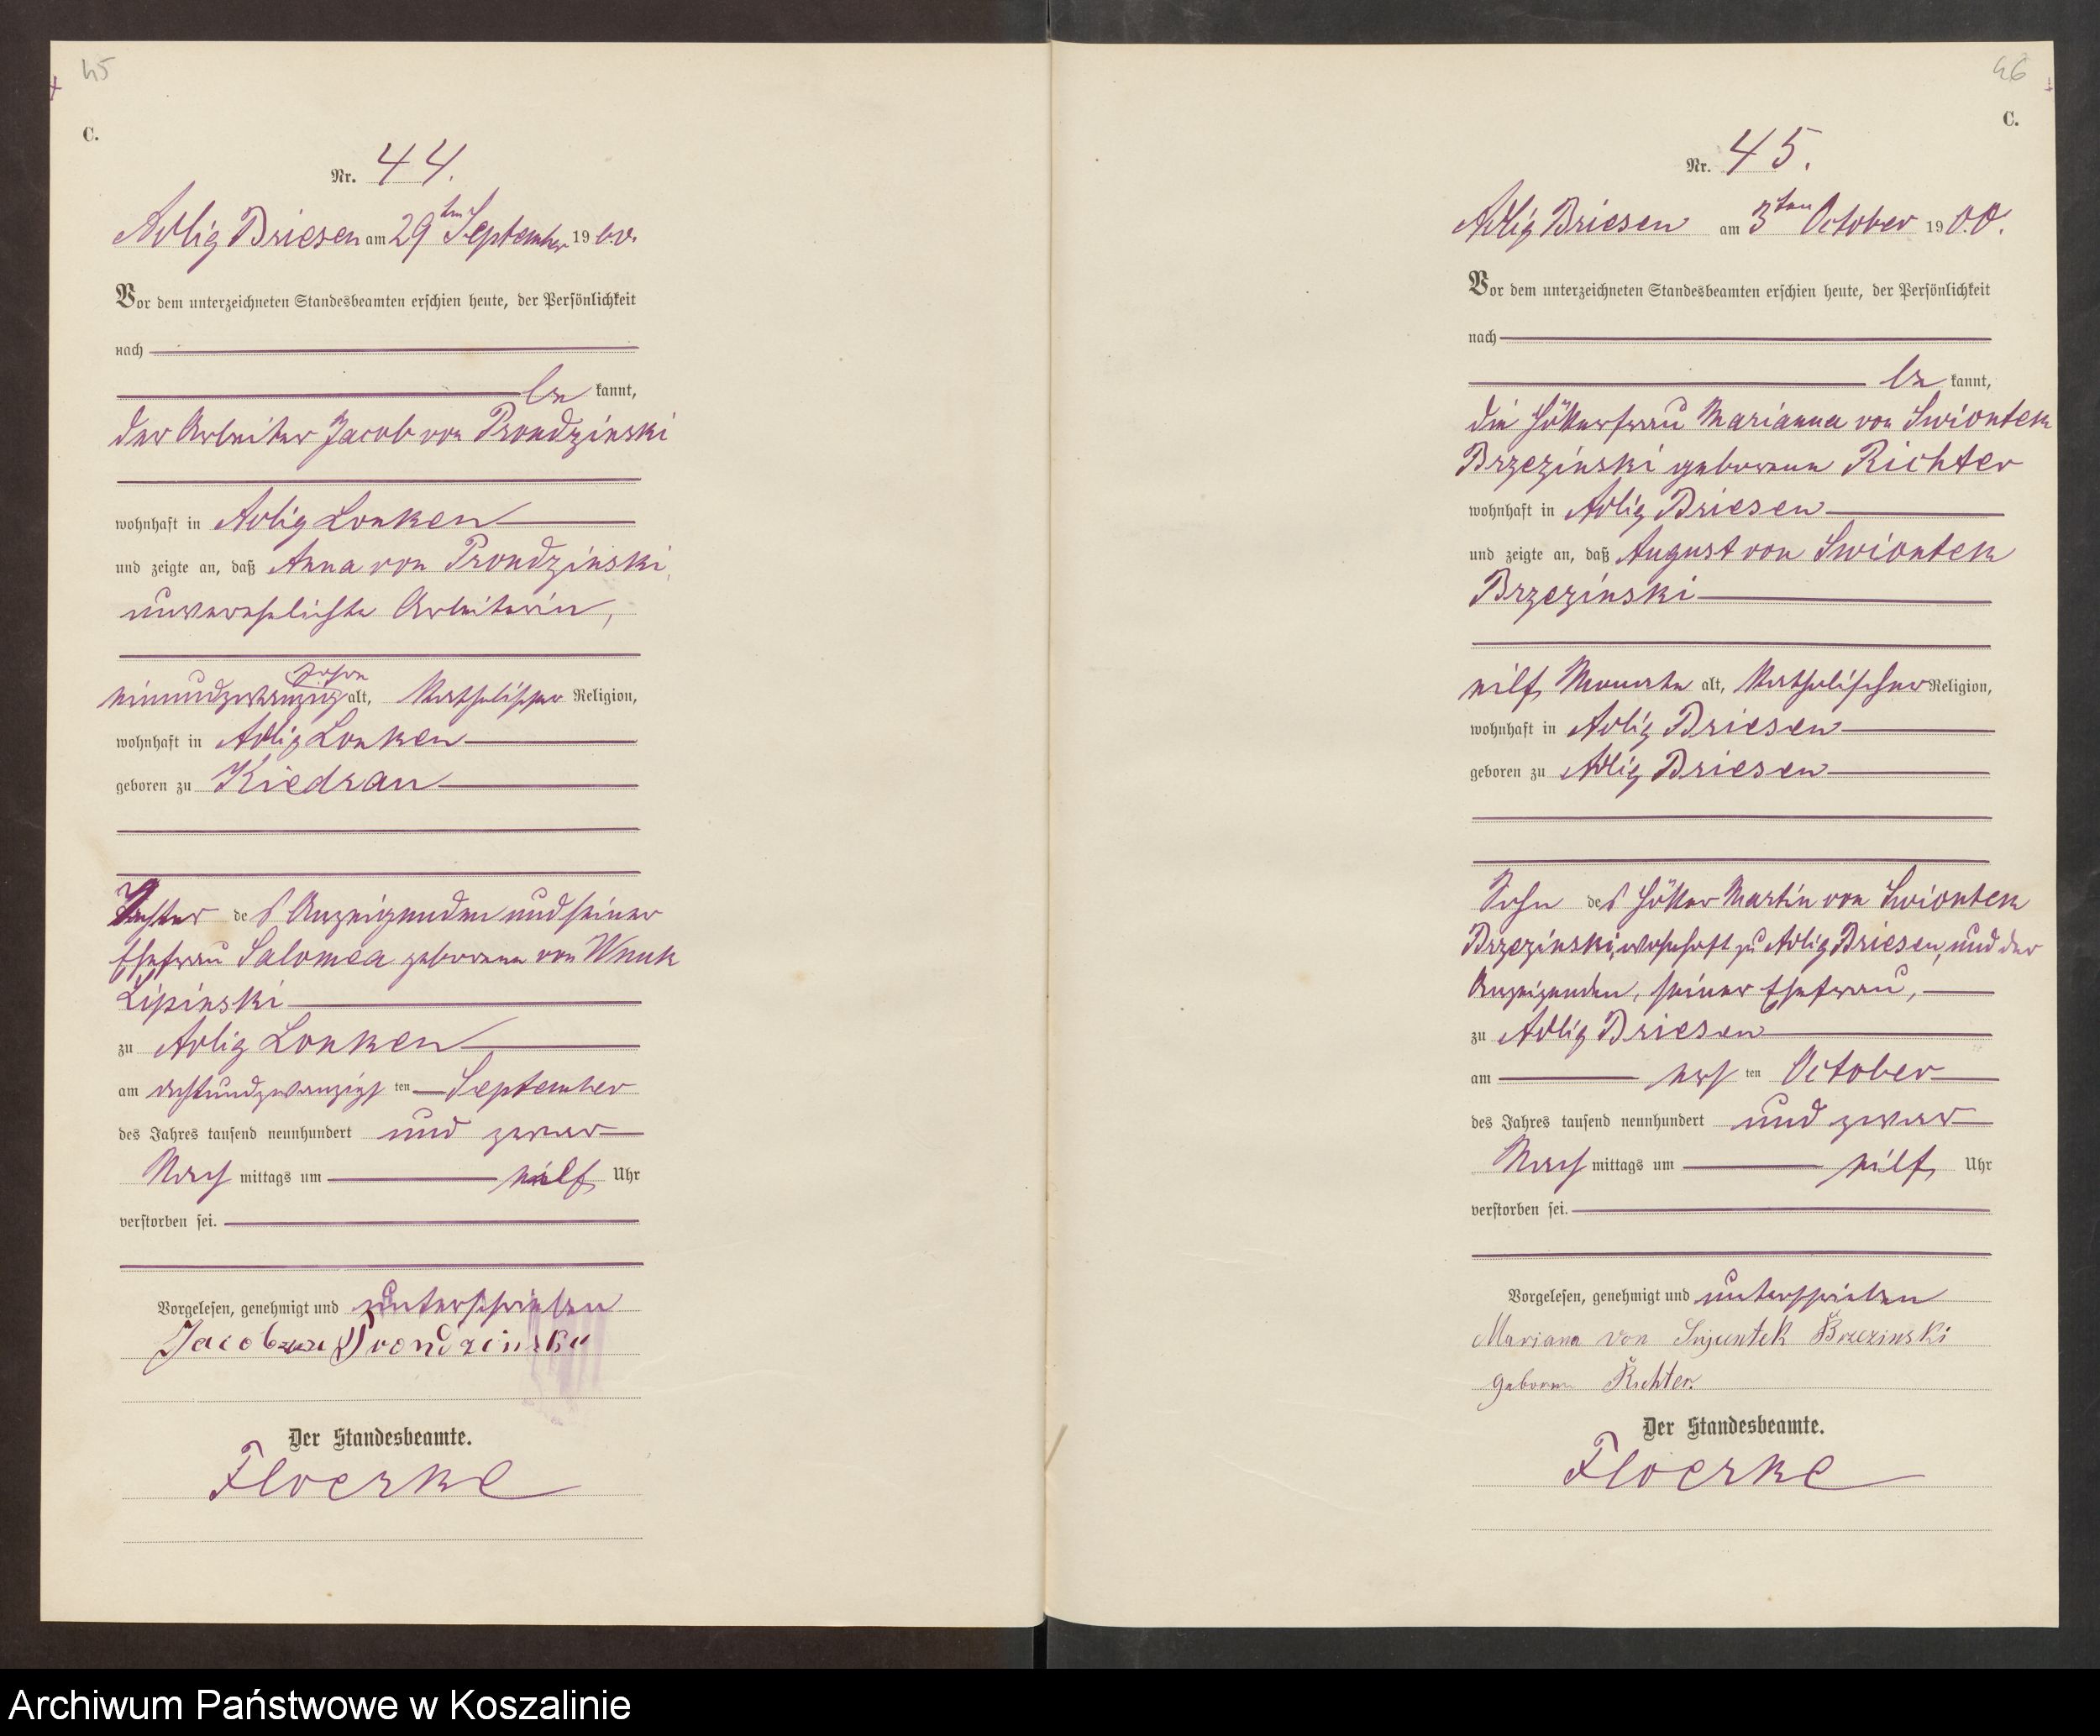 45
C.
Nr. 44.
Adlig Briesen am 29ten September 1900.
Vor dem unterzeichneten Standesbeamten erschien heute, der Persönlichkeit
nach
be kannt,
der Arbeiter Jacob von Prondzinski
wohnhaft in Adlig Lonken
und zeigte an, daß Anna von Prondzinski,
unverehelichte Arbeiterin,
Jahre
einundzwanzig alt, katholischer Religion,
wohnhaft in Adlig Lonken
geboren zu Kiedrau
Tochter des Anzeigenden und seiner
Ehefrau Salomea geborene von Wnuk
Lipinski
zu Adlig Lonken
am achtundzwanzigsten September
des Jahres tausend neunhundert und zwar
Nach mittags um elf Uhr
verstorben sei.
Vorgelesen, genehmigt und unterschrieben
Jacob von Prondzinski
Der Standesbeamte.
Floerke
46
C.
Nr. 45.
Adlig Briesen am 3ten October 1900.
Vor dem unterzeichneten Standesbeamten erschien heute, der Persönlichkeit
nach
be kannt,
die Hökerfrau Marianna von Swiontek
Brzezinski geborene Richter
wohnhaft in Adlig Briesen
und zeigte an, daß August von Swiontek
Brzezinski
elf Monate alt, katholischer Religion,
wohnhaft in Adlig Briesen
geboren zu Adlig Briesen
Sohn des Höker Martin von Swiontek
Brzezinski, wohnhaft zu Adlig Briesen, und der
Anzeigenden, seiner Ehefrau,
zu Adlig Briesen
am ersten October
des Jahres tausend neunhundert und zwar
Nach mittags um elf Uhr
verstorben sei.
Vorgelesen, genehmigt und unterschrieben
Mariana von Brzezinski
geborene Richter.
Der Standesbeamte.
Floerke
Archiwum Państwowe w Koszalinie